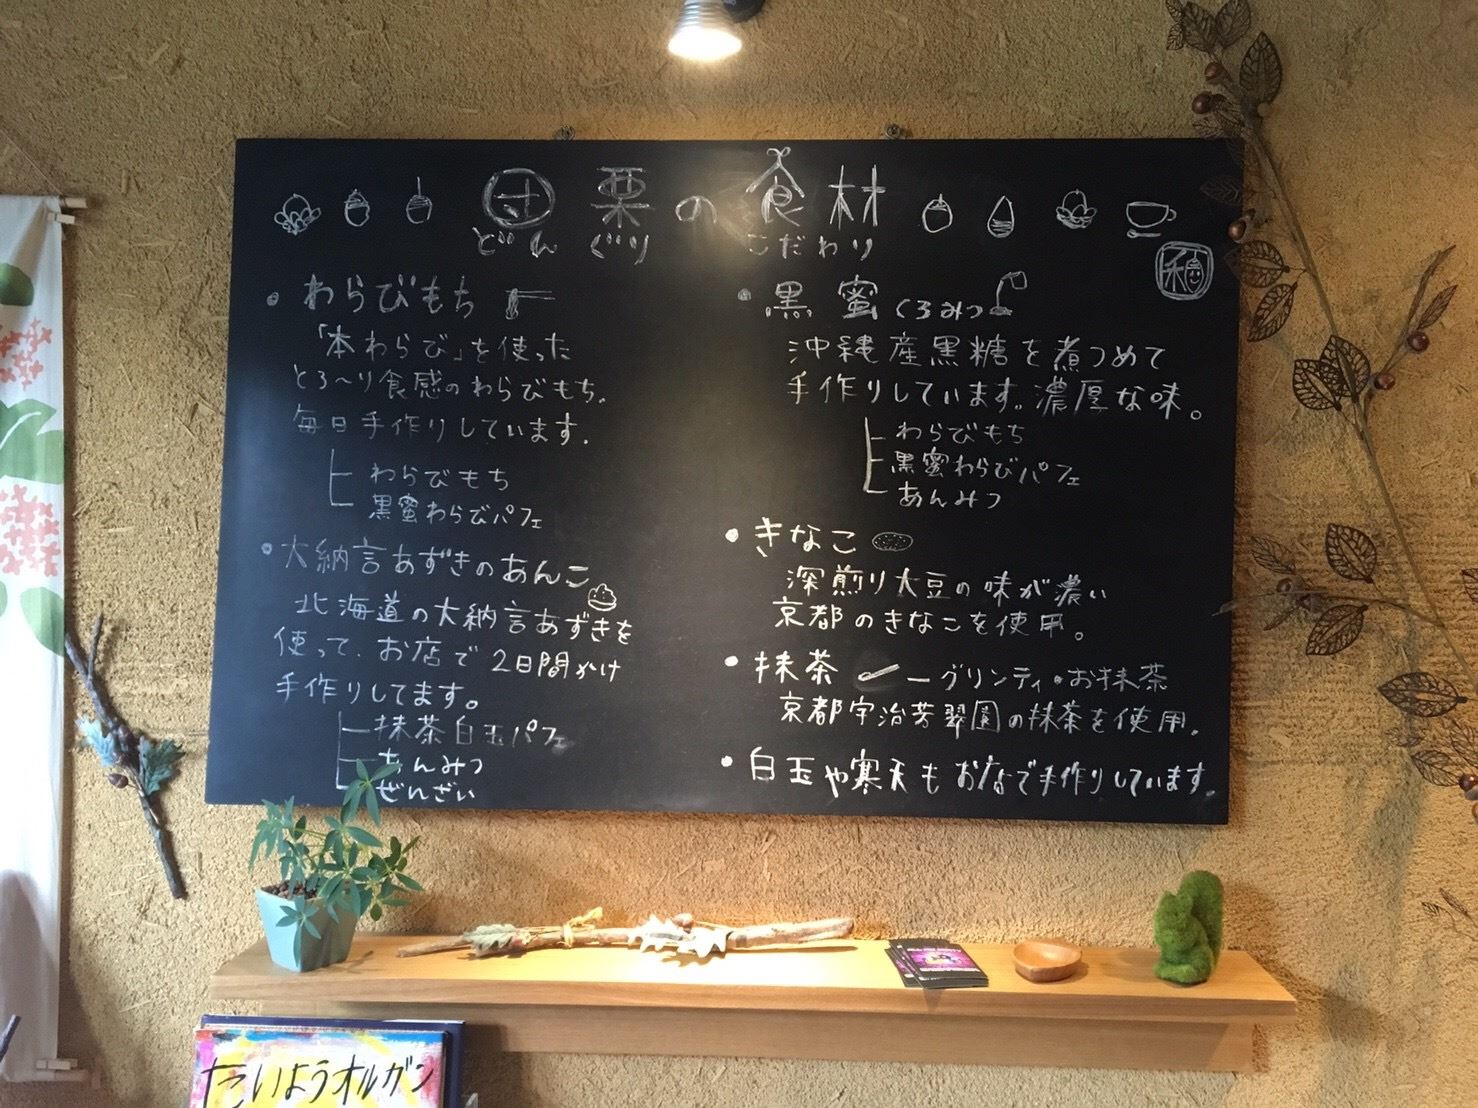 団栗の食材
どんぐり こだわり
和
・わらびもち
「本わらび」を使った
とろ〜り食感のわらびもち。
毎日手作りしています。
わらびもち
黒蜜わらびパフェ
・大納言あずきのあんこ
北海道の大納言あずきを
使って、お店で2日間かけ
手作りしてます。
抹茶白玉パフェ
あんみつ
ぜんざい
・黒蜜 くろみつ
沖縄産黒糖を煮つめて
手作りしています。濃厚な味。
わらびもち
黒蜜わらびパフェ
あんみつ
・きなこ
深煎り大豆の味が濃い
京都のきなこを使用。
・抹茶 ーグリンティ・お抹茶
京都宇治芳翠園の抹茶を使用。
・白玉や寒天もお店で手作りしています。
たいようオルガン